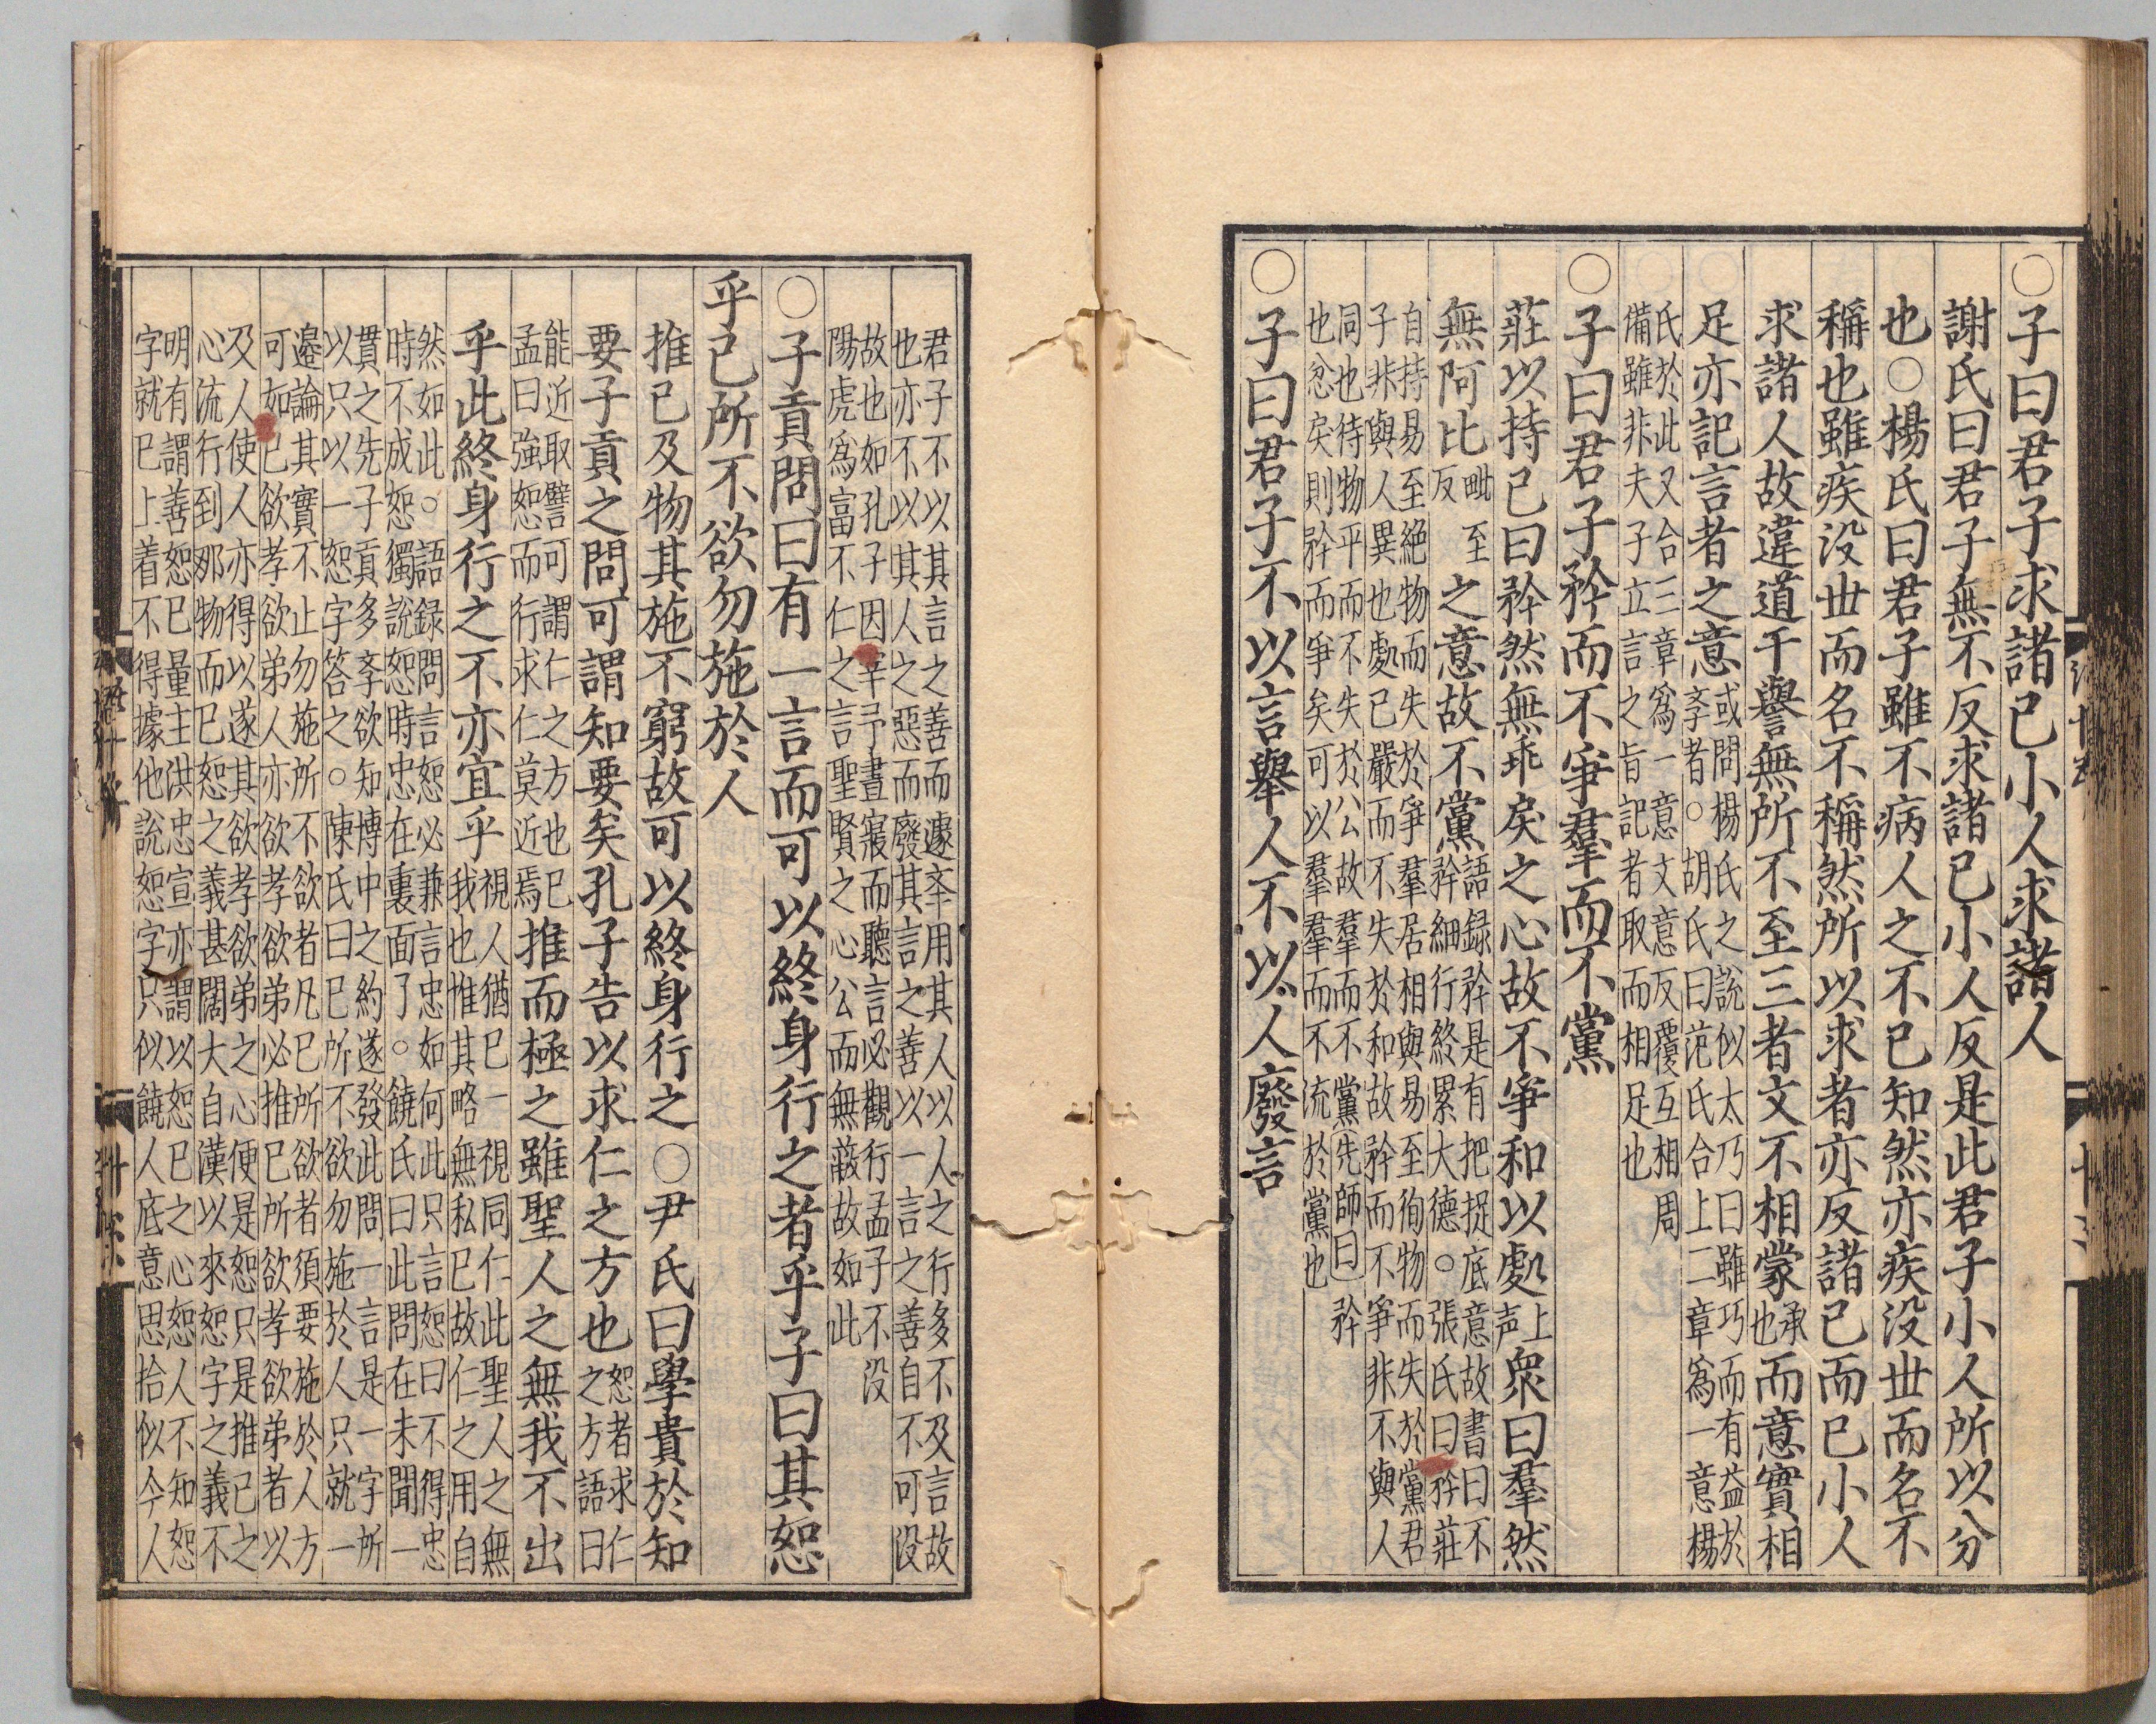 ○子曰君子求諸己小人求諸人
謝氏曰君子無不反求諸己小人反是此君子小人所以分
也○楊氏曰君子雖不病人之不己知然亦疾没世而名不
稱也雖疾没世而名不稱然所以求者亦反諸己而已小人
求諸人故違道干譽無所不至三者文不相蒙承也而意實相
足亦記言者之意或問楊氏之說似太乃曰雖巧而有益於
斈者○胡氏曰范氏合上二章爲一意楊
氏於此又合三章爲一意文意反覆互相周
備雖非夫子立言之旨記者取而相足也
○子曰君子矜而不爭羣而不黨
莊以持己曰矜然無乖戾之心故不爭和以處上声衆曰羣然
無阿比毗至反之意故不黨語録矜是有把捉底意故書曰不
矜細行終累大德○張氏曰矜莊
自持易至絶物而失於爭羣居相與易至徇物而失於黨君
子非與人異也處己嚴而不失於和故矜而不爭非不與人
同也待物平而不失於公故羣而不黨先師曰矜
也忿戾則矜而爭矣可以羣羣而不流於黨也
○子曰君子不以言舉人不以人廢言
君子不以其言之善而遽斈用其人以人之行多不及言故
也亦不以其人之惡而廢其言之善以一言之善自不可没
故也如孔子因宰予晝寢而聽言必觀行孟子不没
陽虎爲富不仁之言聖賢之心公而無蔽故如此
○子貢問曰有一言而可以終身行之者乎子曰其恕
乎己所不欲勿施於人
推己及物其施不窮故可以終身行之○尹氏曰學貴於知
要子貢之問可謂知要矣孔子告以求仁之方也恕者求仁
之方語曰
能近取譬可謂仁之方也已
孟曰強恕而行求仁莫近焉推而極之雖聖人之無我不出
乎此終身行之不亦宜乎視人猶己一視同仁此聖人之無
我也惟其略無私己故仁之用自
然如此○語録問言恕必兼言忠如何此只言恕曰不得忠
時不成恕獨說恕時忠在裏面了○饒氏曰此問在未聞一
貫之先子貢多斈欲知博中之約遂發此問一言是一字所
以只以一恕字答之○陳氏曰己所不欲勿施於人只就一
邊論其實不止勿施所不欲者凡己所欲者須要施於人方
可如己欲孝欲弟人亦欲孝欲弟必推己所欲孝欲弟者以
及人使人亦得以遂其欲孝欲弟之心便是恕只是推己之
心流行到那物而已恕之義甚闊大自漢以來恕字之義不
明有謂善恕己量主洪忠宣亦謂以恕己之心恕人不知恕
字就己上着不得據他說恕字只似饒人底意思恰似今人